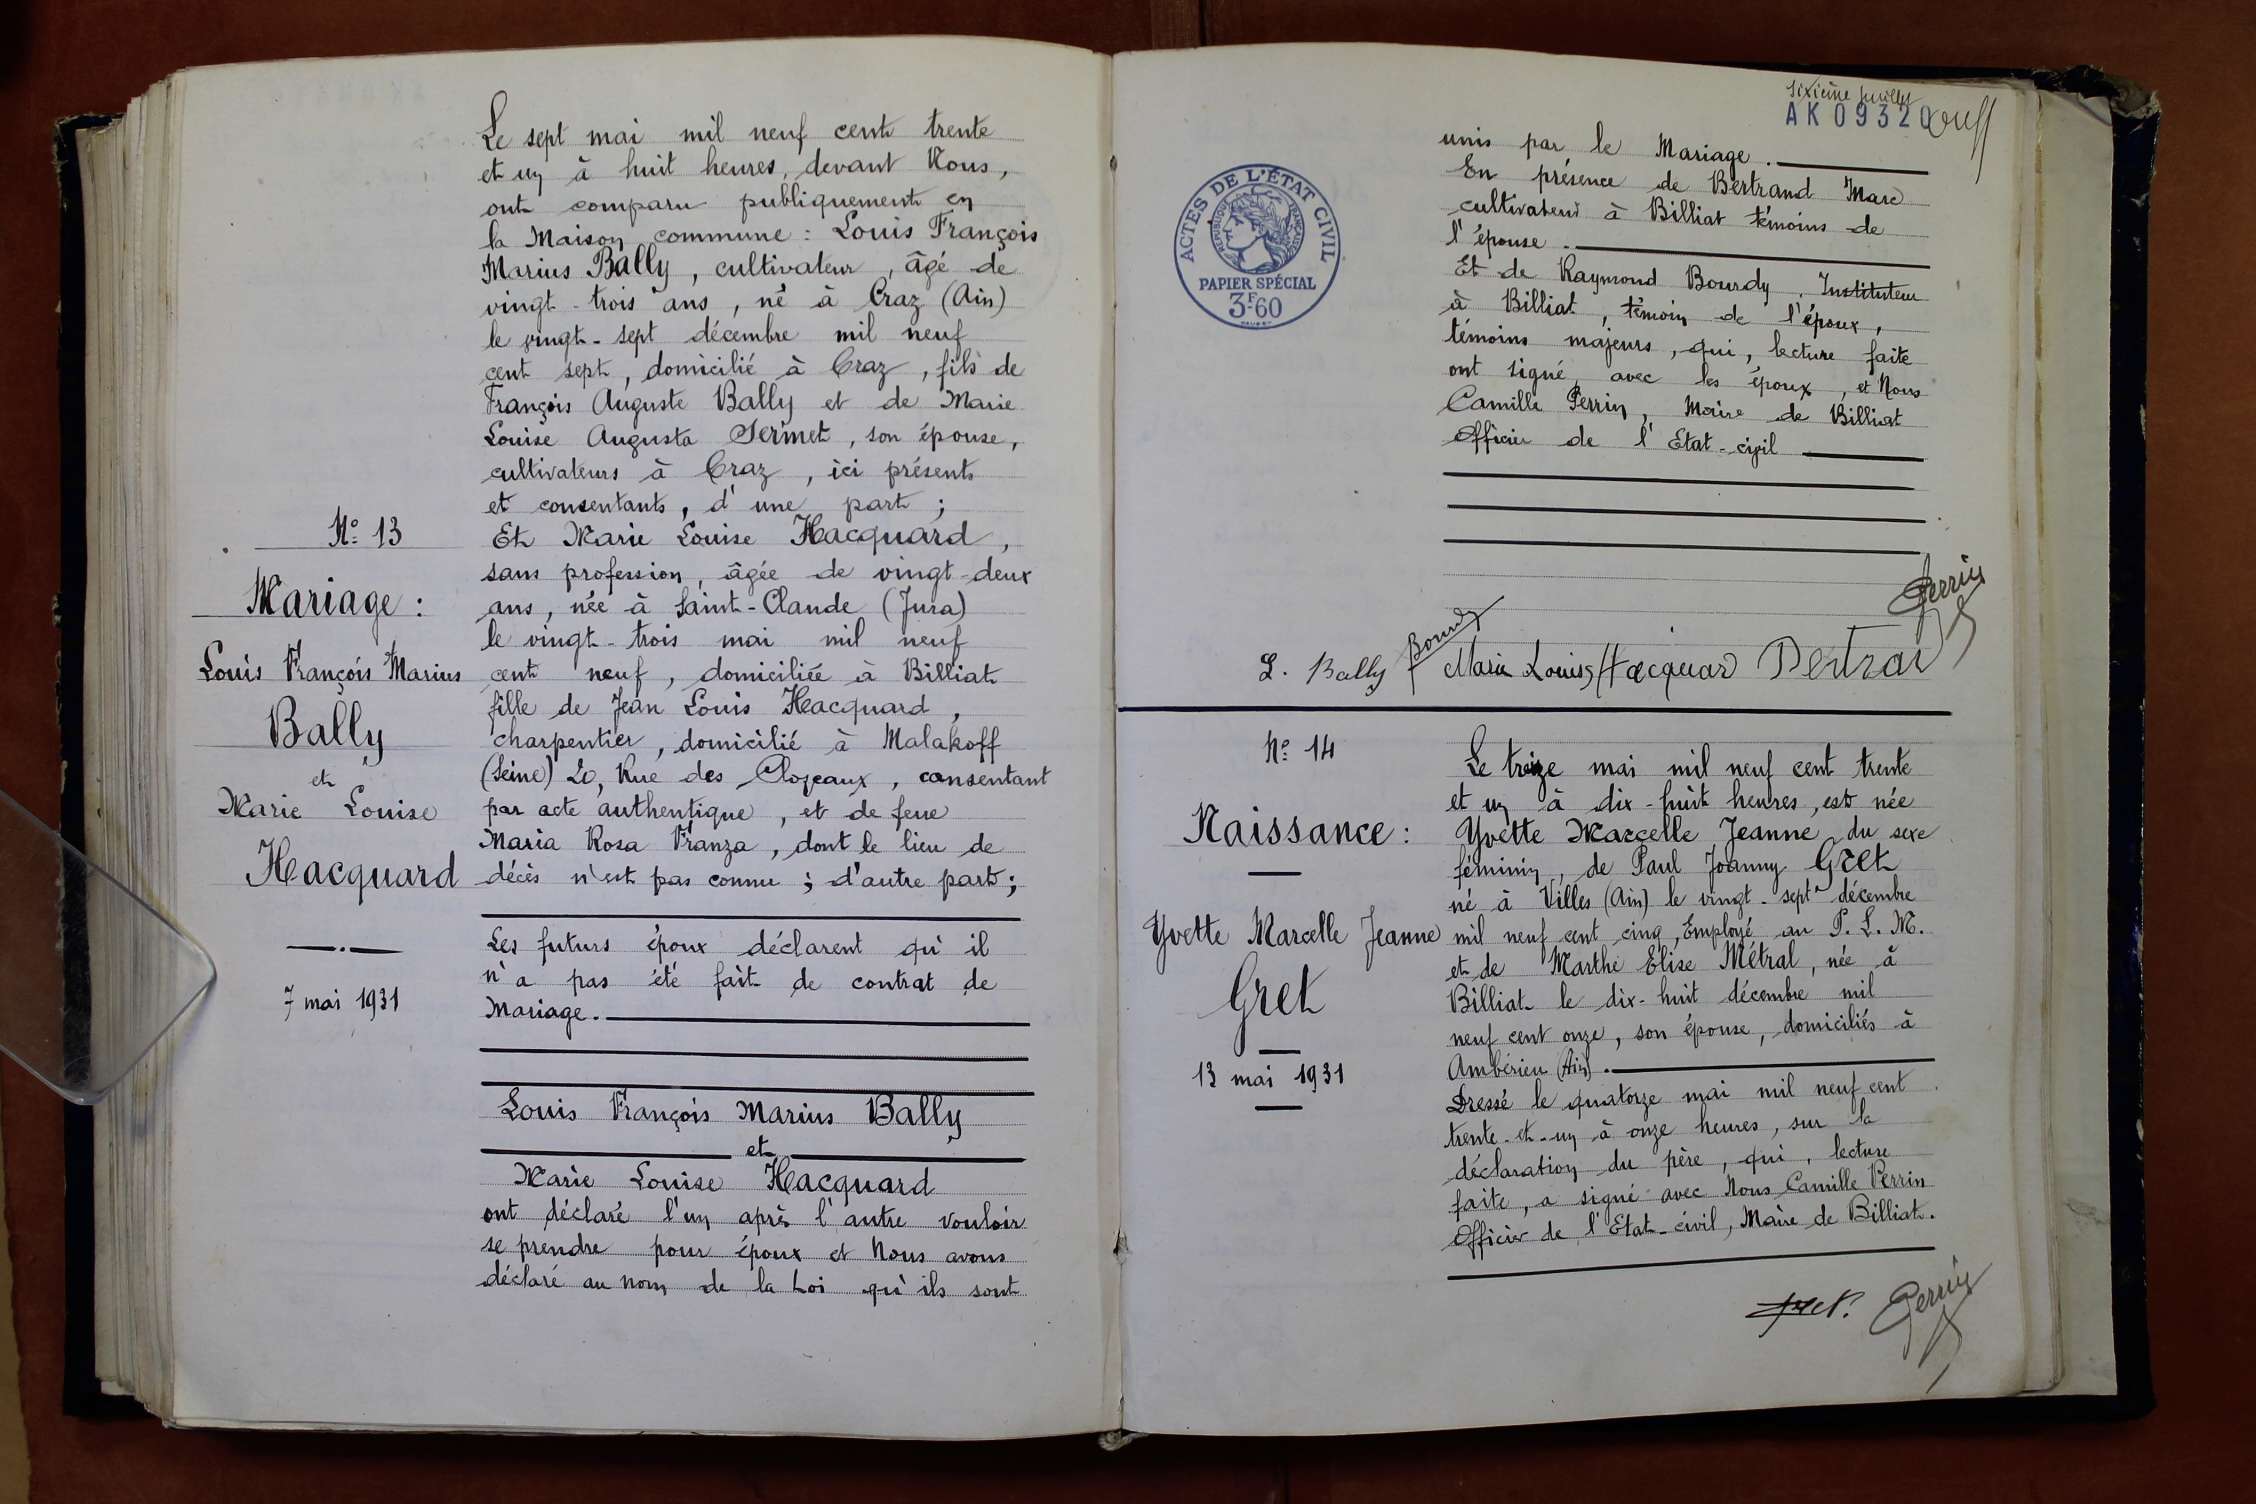 Le sept mai mil neuf cent trente
et un à huit heures, devant Nous,
ont comparu publiquement en
la Maison commune : Louis François
Marius Bally, cultivateur, âgé de
vingt-trois ans, né à Craz (Ain)
le vingt-sept décembre mil neuf
cent sept, domicilié à Craz, fils de
François Auguste Bally et de Marie
Louise Augusta Sermet, son épouse,
cultivateurs à Craz, ici présents
et consentants, d'une part ;
No 13
Mariage :
Louis François Marius
Bally
et
Marie Louise
Hacquard
7 mai 1931
Et Marie Louise Hacquard,
sans profession, âgée de vingt-deux
ans, née à Saint-Claude (Jura)
le vingt-trois mai mil neuf
cent neuf, domiciliée à Billiat
fille de Jean Louis Hacquard,
charpentier, domicilié à Malakoff
(Seine) 20, Rue des Clozeaux, consentant
par acte authentique, et de feue
Maria Rosa Franza, dont le lieu de
décès n'est pas connu ; d'autre part ;
Les futurs époux déclarent qu'il
n'a pas été fait de contrat de
Mariage.
Louis François Marius Bally
et
Marie Louise Hacquard
ont déclaré l'un après l'autre vouloir
se prendre pour époux et Nous avons
déclaré au nom de la Loi qu'ils sont
sixième feuillet
AK 09320
ACTES DE L'ÉTAT CIVIL
RÉPUBLIQUE FRANÇAISE
PAPIER SPÉCIAL
3F60
unis par le Mariage.
En présence de Bertrand Marc
cultivateur à Billiat témoins de
l'épouse.
Et de Raymond Bourdy. Instituteur
à Billiat, témoin de l'époux,
témoins majeurs, qui, lecture faite
ont signé avec les époux, et Nous
Camille Perrin, Maire de Billiat
Officier de l'Etat-civil
Perrin
L. Bally Bourdy Marie Louise Hacquard Bertrand
No 14
Naissance :
Yvette Marcelle Jeanne
Gret
13 mai 1931
Le treize mai mil neuf cent trente
et un à dix-huit heures, est née
Yvette Marcelle Jeanne du sexe
féminin, de Paul Joanny Gret
né à Villes (Ain) le vingt-sept décembre
mil neuf cent cinq, Employé au P. L. M.
et de Marthe Elise Métral, née à
Billiat le dix-huit décembre mil
neuf cent onze, son épouse, domiciliés à
Ambérieu (Ain).
Dressé le quatorze mai mil neuf cent
trente-et-un à onze heures, sur la
déclaration du père, qui, lecture
faite, a signé avec Nous Camille Perrin
Officier de l'Etat-civil, Maire de Billiat.
Gret. Perrin